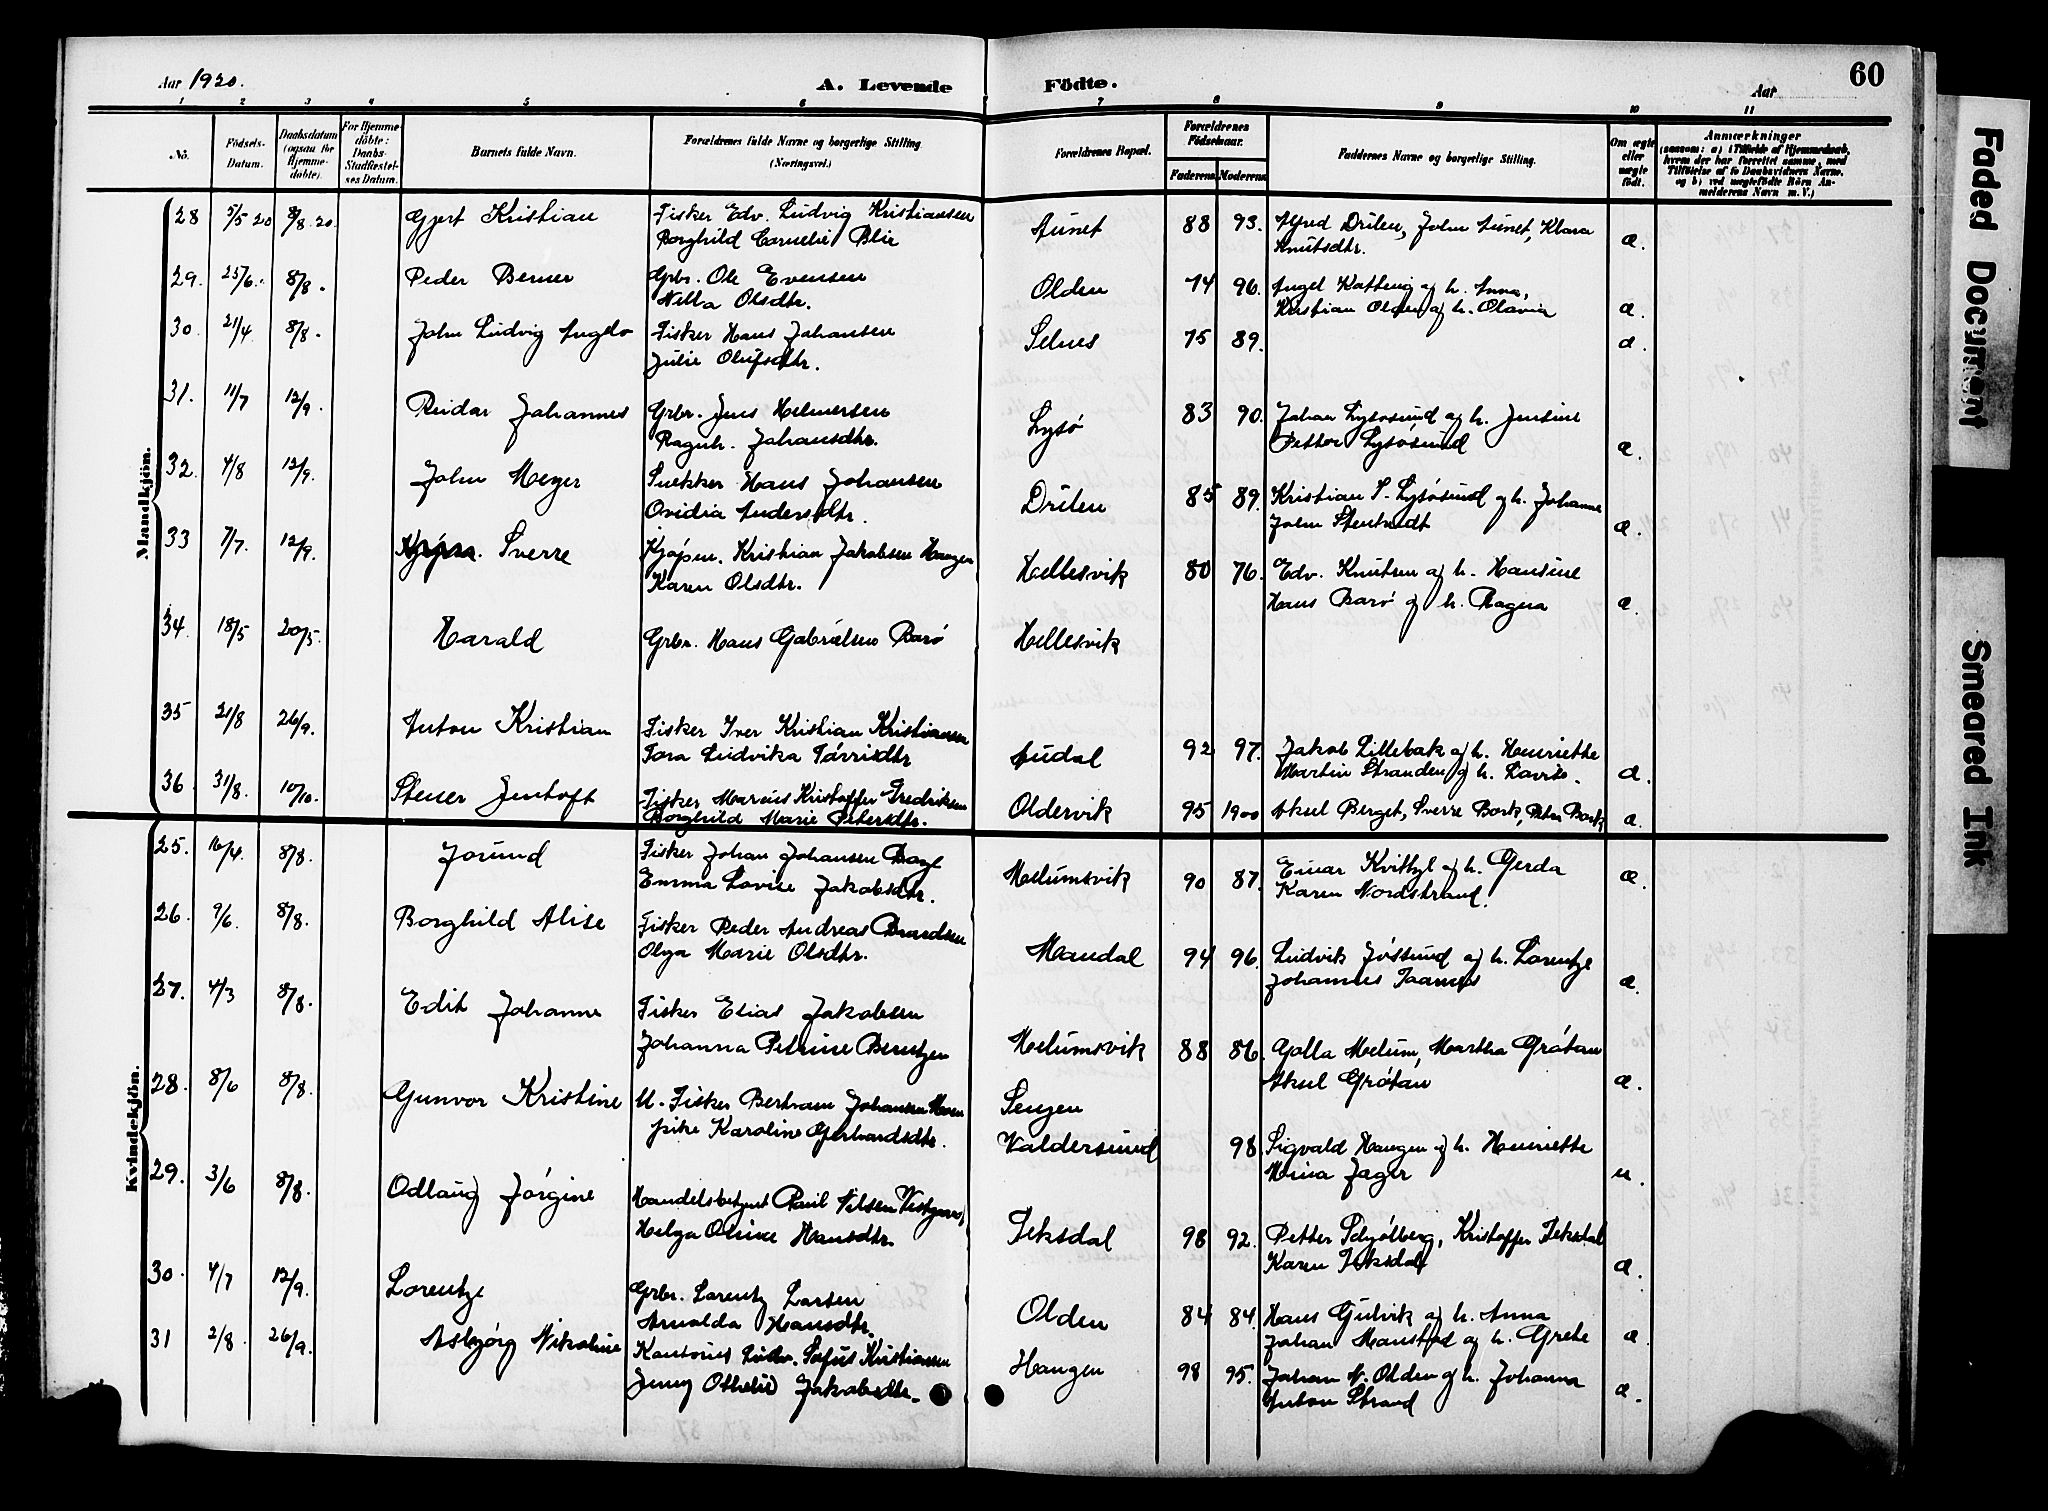 Aar 1920.
A. Levende Födte.
Aar
60
1 2 3 4 5 6 7 8 9 10 11
No.
Födsels-Datum.
Daabsdatum (ogsaa for Hjemme-döbte).
For Hjemme-döbte: Daabs-Stadfæstel-ses Datum.
Barnets fulde Navn.
Forældrenes fulde Navne og borgerlige Stilling (Næringsvei.)
Forældrenes Bopæl.
Forældrenes Födselsaar.
Faderens Moderens
Faddernes Navne og borgerlige Stilling.
Om ægte eller uægte födt.
Anmærkninger
Mandkjön.
28 5/5 20 8/8 20. Gjert Kristian Fisker Edv. Ludvig Kristiansen Aunet 88 93. Alfred Drilen, John Aunet, Klara
Borghild Cornelie Knutsdtr. æ.
29. 25/6. 8/8. Peder Berner Grbr. Ole Evensen Olden 74 96. Kattevig og h. Anna,
Nella Olsdtr. Kristian Olden og h. Olavia æ.
30. 21/4. 8/8. John Ludvig Fisker Hans Johansen Selnes 75 89. æ.
Julie Olufsdtr.
31. 11/7 12/9. Reidar Johannes Grbr. Jens Helmersen Lysø 83 90. Johan Lysøsund og h. Jensine
Ragnh. Johansdtr. Petter Lysøsund æ.
32. 4/8 12/9. John Meyer Snekker Hans Johansen Drilen 85 89. Kristian S. Lysøsund og h. Johanne
Ovidia Andersdtr. John æ.
33 7/7. 12/9. Sverre Kjøpm. Kristian Jakobsen Haugen Hellesvik 80 76. Edv. Knutsen og h. Hansine
Karen Olsdtr. Hans Barø og h. Ragna æ.
34. 18/5 20/5. Harald Grbr. Hans Gabrielsen Barø Hellesvik
35 21/8 26/9. Anton Kristian Fisker Iver Kristian Kristiansen Audal 92 97. Jakob Lillebak og h. Henriette
Tora Ludvika Martin Stranden og h. æ.
36 31/8. 10/10. Stener Jentoft Fisker Marcus Kristoffer Fredriksen Oldervik 95 1900 Aksel Berget, Sverre Bork, Peter Bork æ.
Borghild Marie Petersdtr.
Kvindekjön.
25. 16/4. 8/8. Jorund Fisker Johan Johansen Melumsvik 90 87. Einar Kvithyl og h. Gerda æ.
Emma Lovise Jakobsdtr. Karen Nordstrand.
26. 9/6. 8/8. Borghild Alise Fisker Peder Andreas Mandal 94 96. Ludvik Jøssund og h. Lorentze
Olga Marie Olsdtr. Johannes æ.
27. 4/3 8/8. Edit Johanne Fisker Elias Jakobsen
Johanna Petrine Berntzen Melumsvik 88 86. Golla Melum, Martha Grøtan
Aksel Grøtan æ.
28. 8/6 8/8. Gunvor Kristine U. Fisker Bertram Johansen Sengen
pike Karoline Gerhardsdtr. Valdersund 98. Sigvald Haugen og h. Henriette
29. 3/6 8/8. Odlaug Jørgine Handelsbetjent Paul Nilsen Mina Jager u.
Helga Oline Hansdtr. Teksdal 98 92. Petter Schjølberg, Kristoffer Teksdal
Karen Teksdal æ.
30. 4/7 12/9. Lorentze Grbr. Lorentz Larsen Olden 84 84. Hans Gulvik og h. Anna
Arnolda Hansdtr. Johan og h. Grete æ.
31 2/8 26/9. Asbjørg Nikoline Kristiansen Haugen 98 95. Johan N. Olden og h. Johanna
Jenny Othelie Jakobsdtr. Anton Strand æ.
Faded Document
Smeared Ink